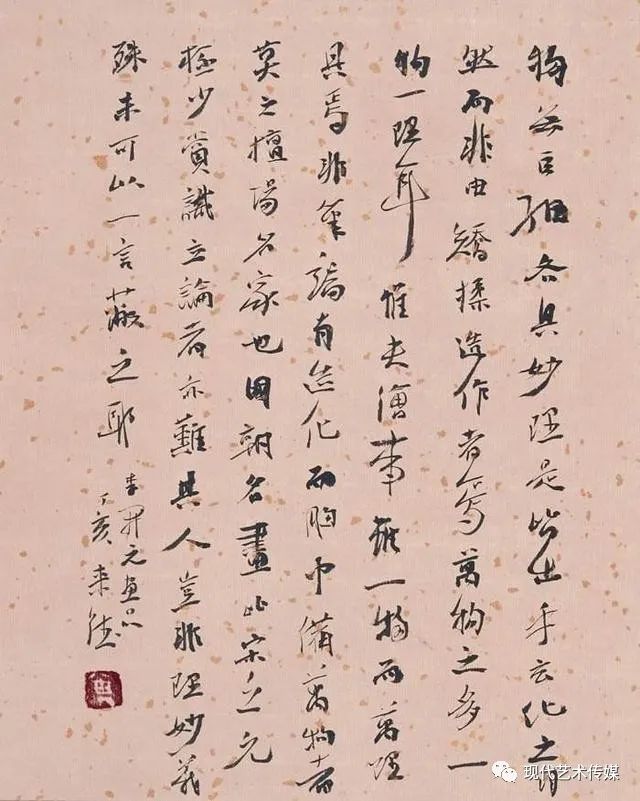 物無巨細各具妙理是皆出乎玄化之自
然而非由矯揉造作者焉萬物之多一
物一理耳惟夫繪事雖一物而萬理
具焉非筆端有造化而胸中備萬物者
莫之擅場名家也國朝名畫比宋之元
極少賞識立論者亦難其人豈非理妙義
殊未可以一言蔽之耶
李開元畫品
丁亥来德
现代艺术传媒